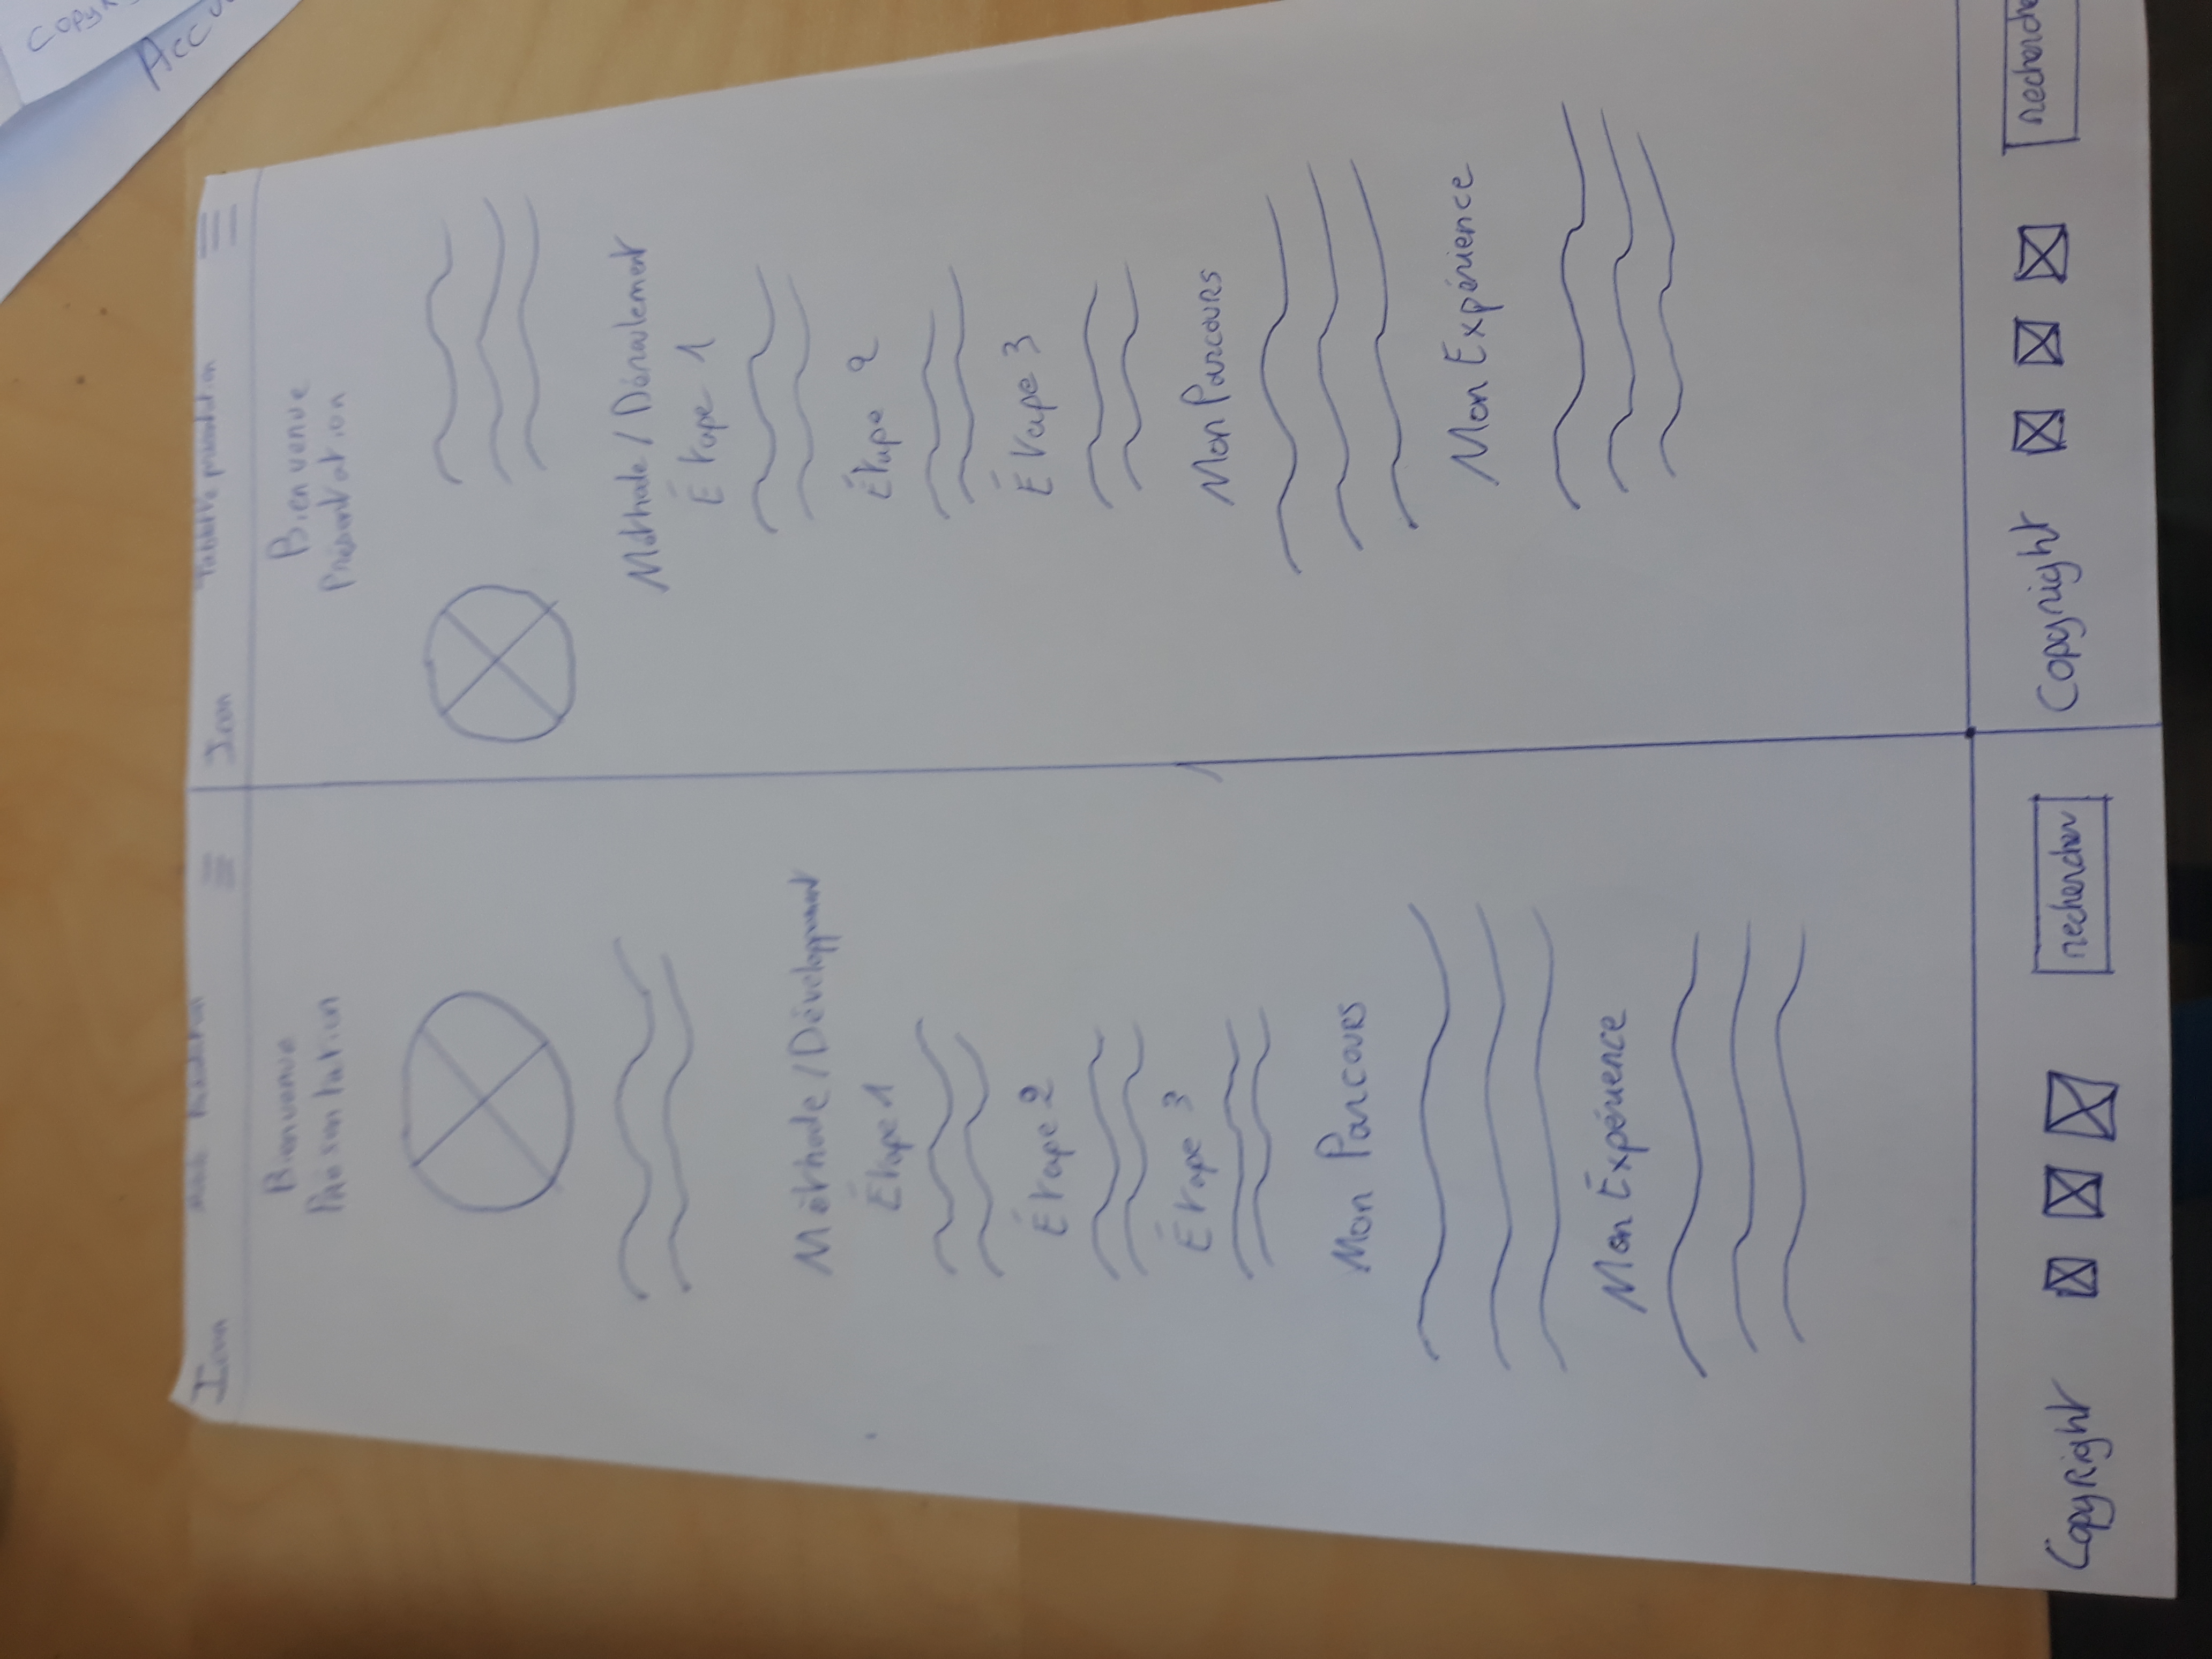 Icon Mobile Présentation
Bienvenue
Présentation
Méthode / Développement
Étape 1
Étape 2
Étape 3
Mon Parcours
Mon Expérience
CopyRight rechercher
Icon Tablette présentation
Bienvenue
Présentation
Méthode / Déroulement
Étape 1
Étape 2
Étape 3
Mon Parcours
Mon Expérience
Copyright recherche
Copyr
Accu